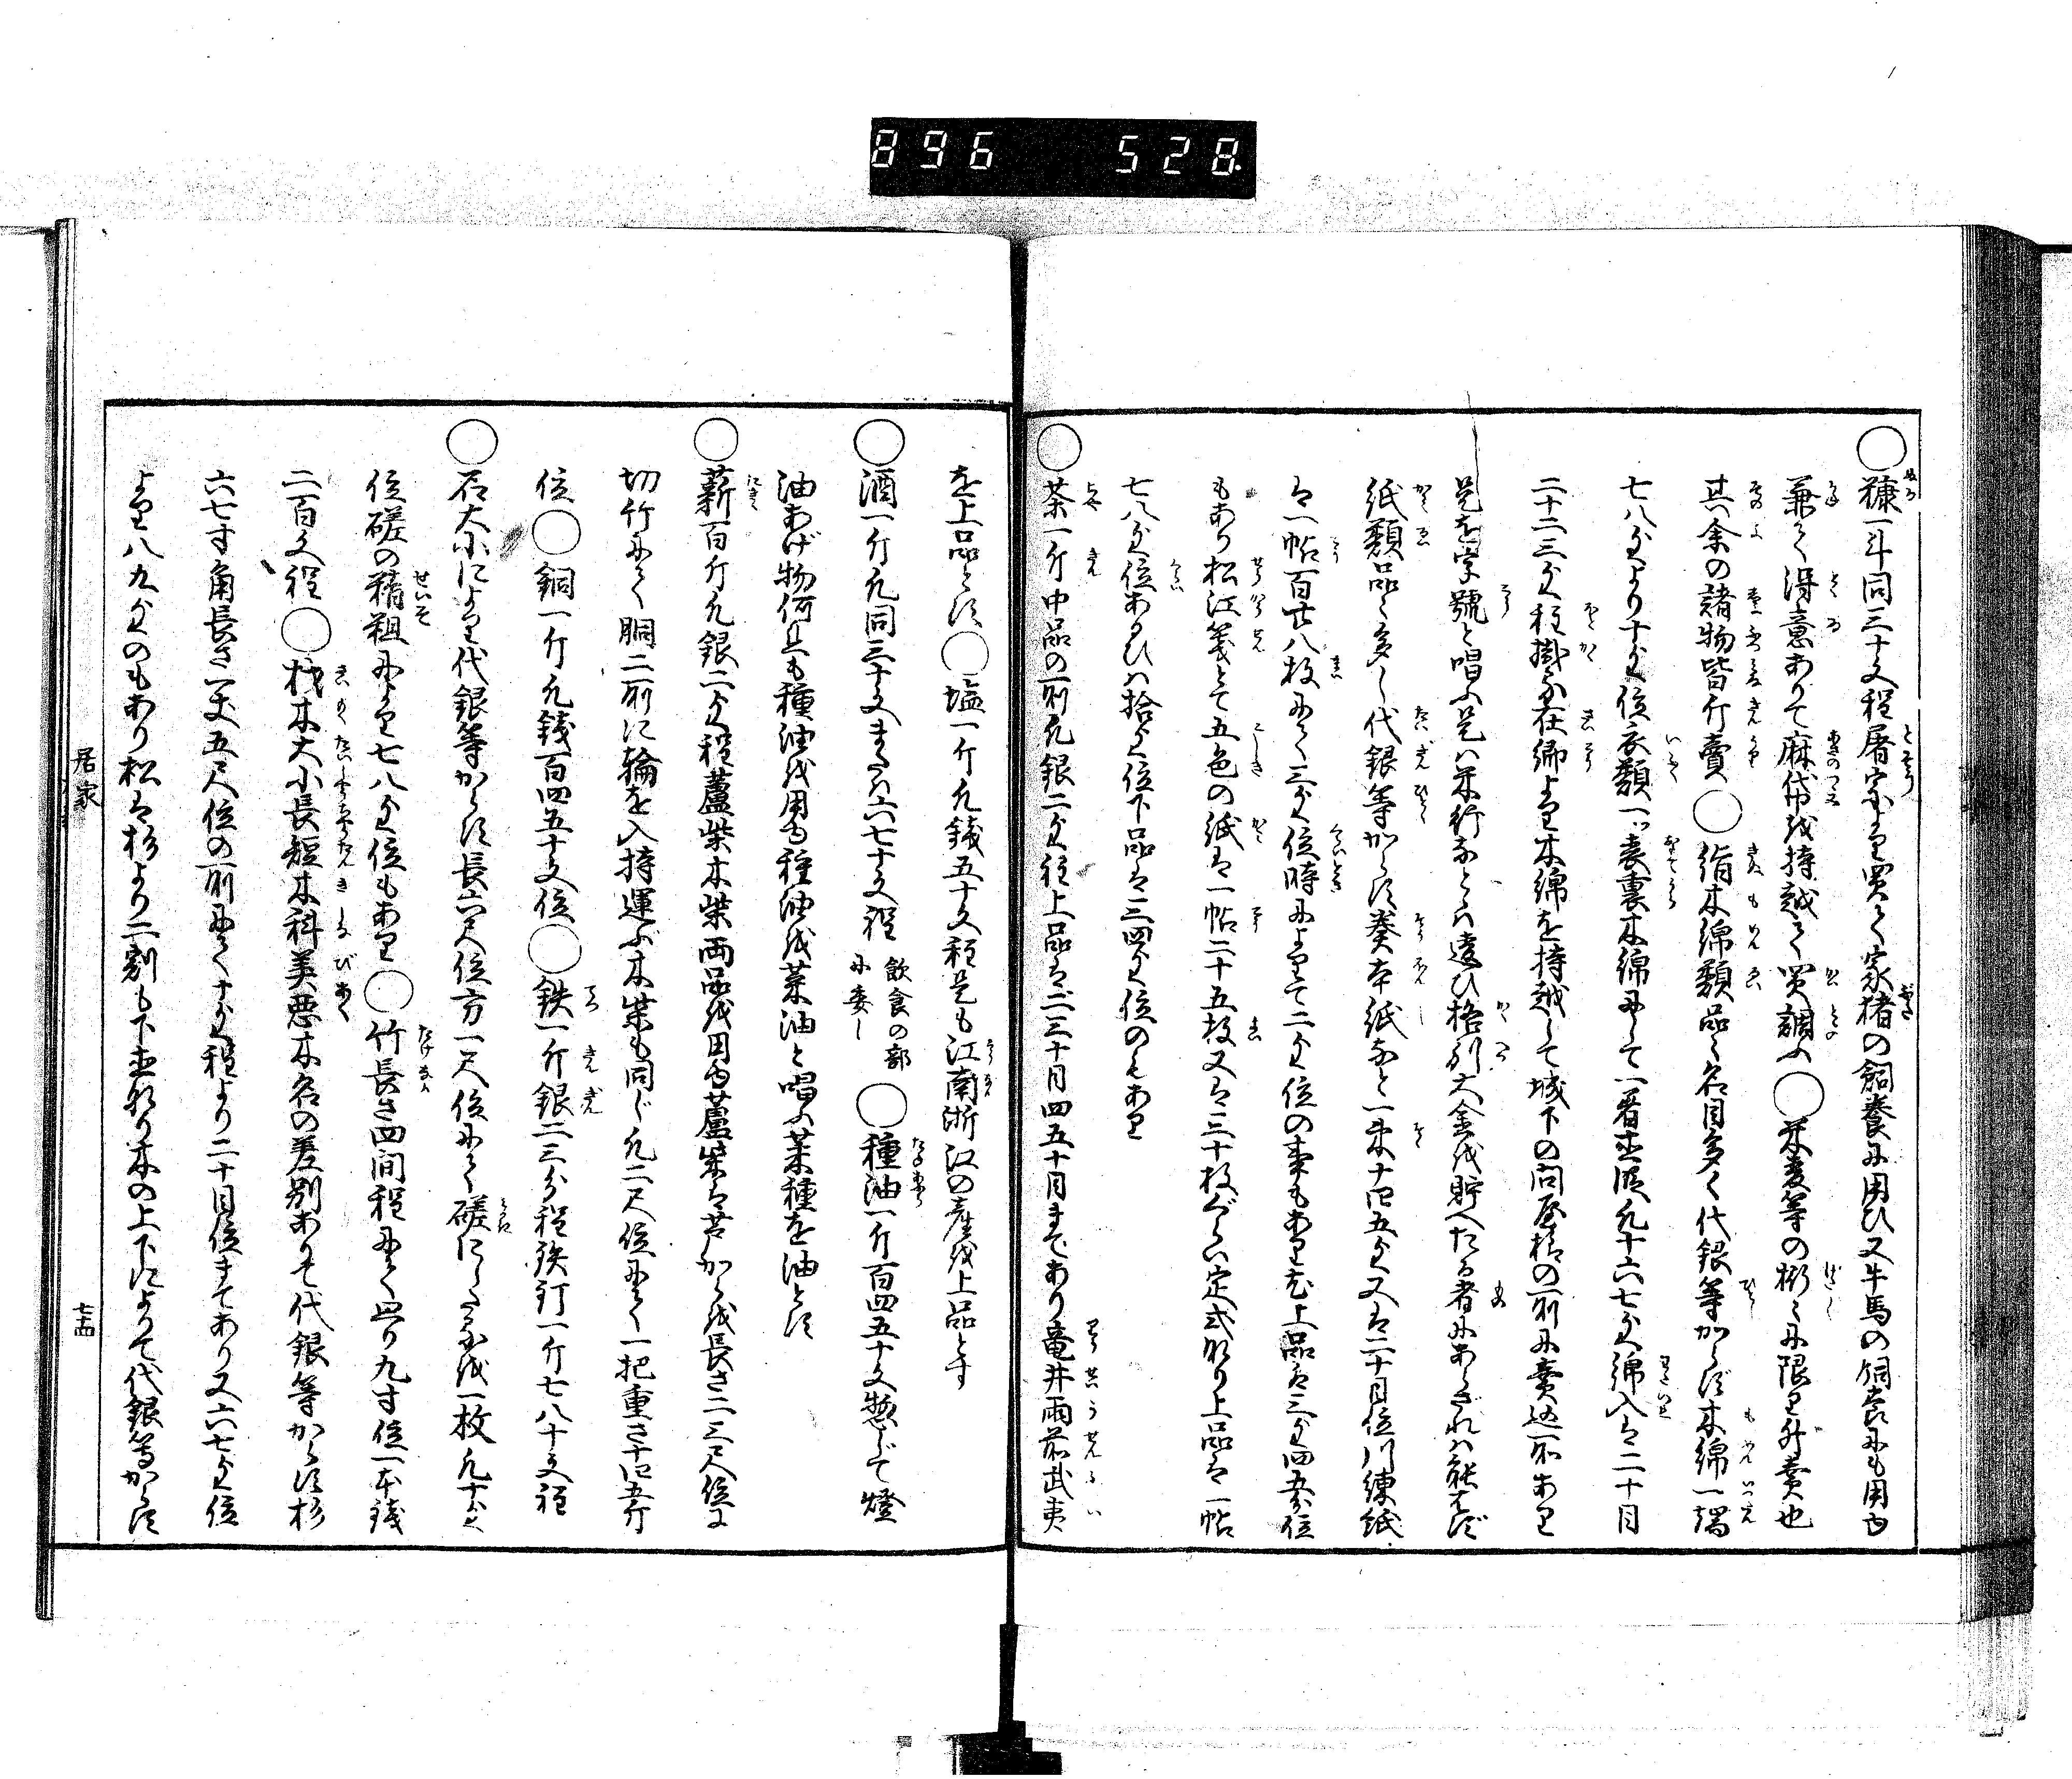 896 528
○糠一斗同三十文程屠家より買て家猪の飼養に用ひ又牛馬の飼食にも用ゆ
兼て得意ありて麻袋を持越て買調ふ○米麦等の樹々に限り升賣也
其余の諸物皆斤賣○絹木綿類品々名目多く代銀等からず木綿一端
七八匁より十匁位衣類一ッ表裏木綿にして一着直段凡十六七匁綿入は二十目
二十二三匁程掛る在郷より木綿を持越して城下の問屋様の所に賣込所あり
是を字號と唱ふ是は米行などゝは違ひ格別大金を貯へたる者にあらざれば能はず
紙類品々多し代銀等からず奏本紙など一束十四五匁又は二十目位川練紙
は一帖百廿八枚にて三匁位時によりて二匁位の事もあり尤上品は三匁四五分位
もあり松江箋とて五色の紙は一帖二十五枚又は三十枚ぐらい定式なり上品は一帖
七八匁位あるひハ拾匁位下品は三四匁位のもあり
○茶一斤中品の所凡銀二匁程上品は二三十目四五十目まであり竜井雨前武夷
を上品とす○塩一斤凡銭五十文程是も江南浙江の産を上品とす
○酒一斤凡同三十文または六七十文程 飲食の部に委し ○種油一斤百四五十文惣じて燈
油あげ物何れも種油を用ゆ種油を菜油と唱ふ菜種を油とす
○薪百斤凡銀二匁程蘆柴木柴両品を用ゆ蘆柴は苫からを長さ二三尺位に
切竹にて胴二所に輪を入持運ぶ木柴も同じ凡二尺位にて一把重さ十四五斤
位○銅一斤凡銭百四五十文位○鉄一斤銀二三分程鉄釘一斤七八十文程
○石大小により代銀等からず長六尺位方一尺位にて磋にしたるを一枚凡十六匁
位磋の精粗により七八匁位もあり○竹長さ四間程にて廻り九寸位一本銭
二百文程○材木大小長短木科美悪木名の差別ありて代銀等からず杉
六七寸角長さ一丈五尺位の所にて十匁程より二十目位まであり又六七匁位
より八九匁のもあり松は杉より二割も下直なり木の上下によりて代銀等からず
居家 七十四